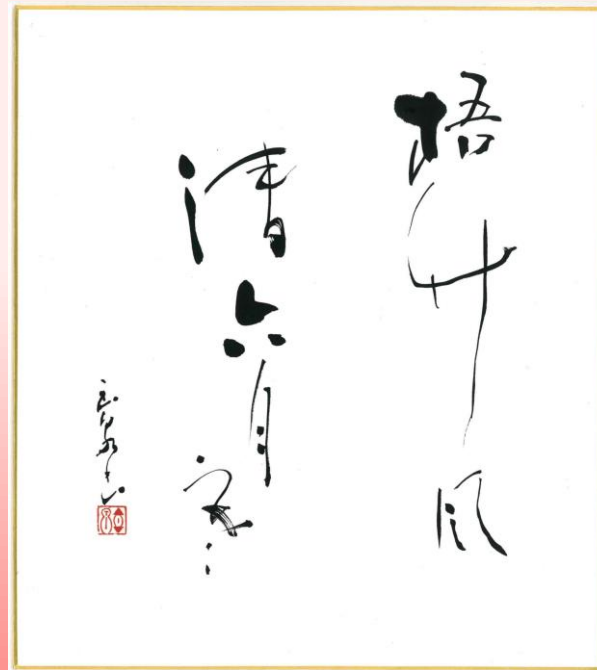 梧竹風
清六月寒